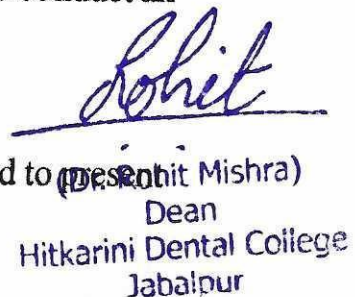 Rohit
d to present
(Dr. Rohit Mishra)
Dean
Hitkarini Dental College
Jabalpur